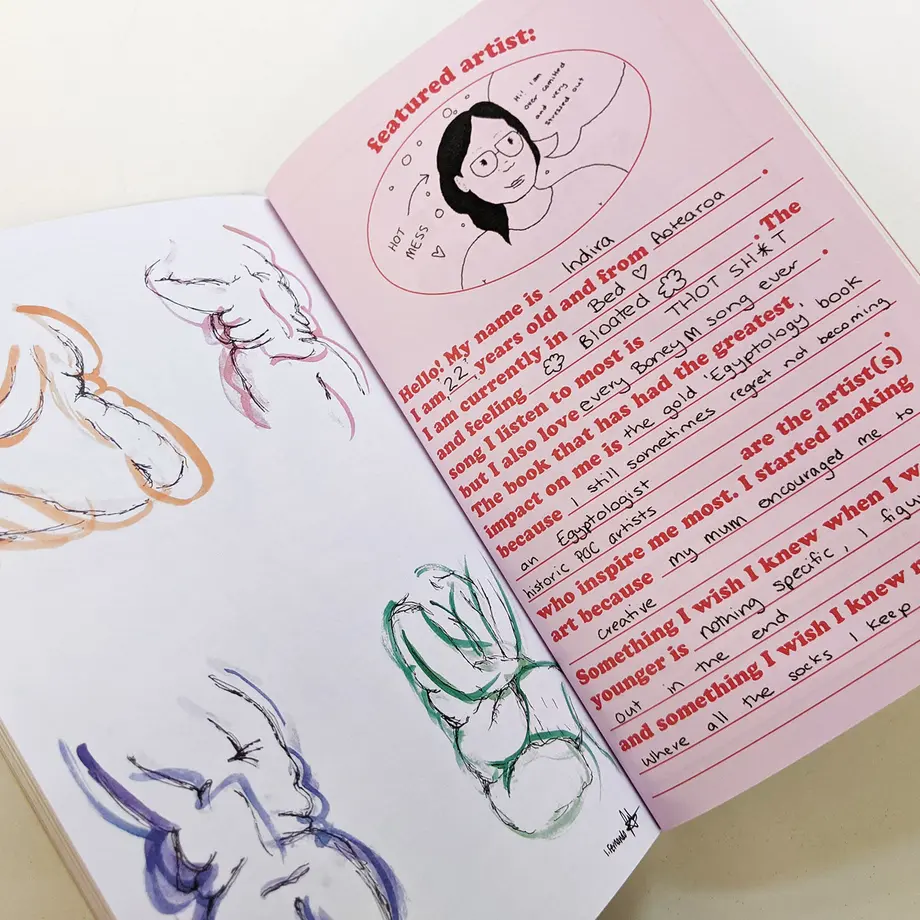 featured artist:
Hi! I am
over comitted
and very
stressed out
HOT
MESS
Hello! My name is Indira.
I am 22 years old and from Aotearoa
I am currently in Bed ♡. The
and feeling Bloated
song I listen to most is THOT SH*T.
but I also love every Boney M song ever,
The book that has had the greatest
impact on me is the gold 'Egyptology' book
because I still sometimes regret not becoming
an Egyptologist.
historic POC artists are the artist(s)
who inspire me most. I started making
art because my mum encouraged me to
creative
Something I wish I knew when I w
younger is nothing specific, I figu
out in the end
and something I wish I knew n
where all the socks I keep